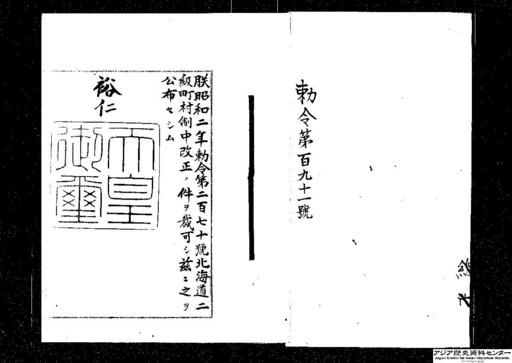 勅令第百九十一號
朕昭和二年勅令第二百七十號北海道二
級町村制中改正ノ件ヲ裁可シ茲ニ之ヲ
公布セシム
裕仁
天皇
御璽
アジア歴史資料センター
Japan Center for Asian Historical Records